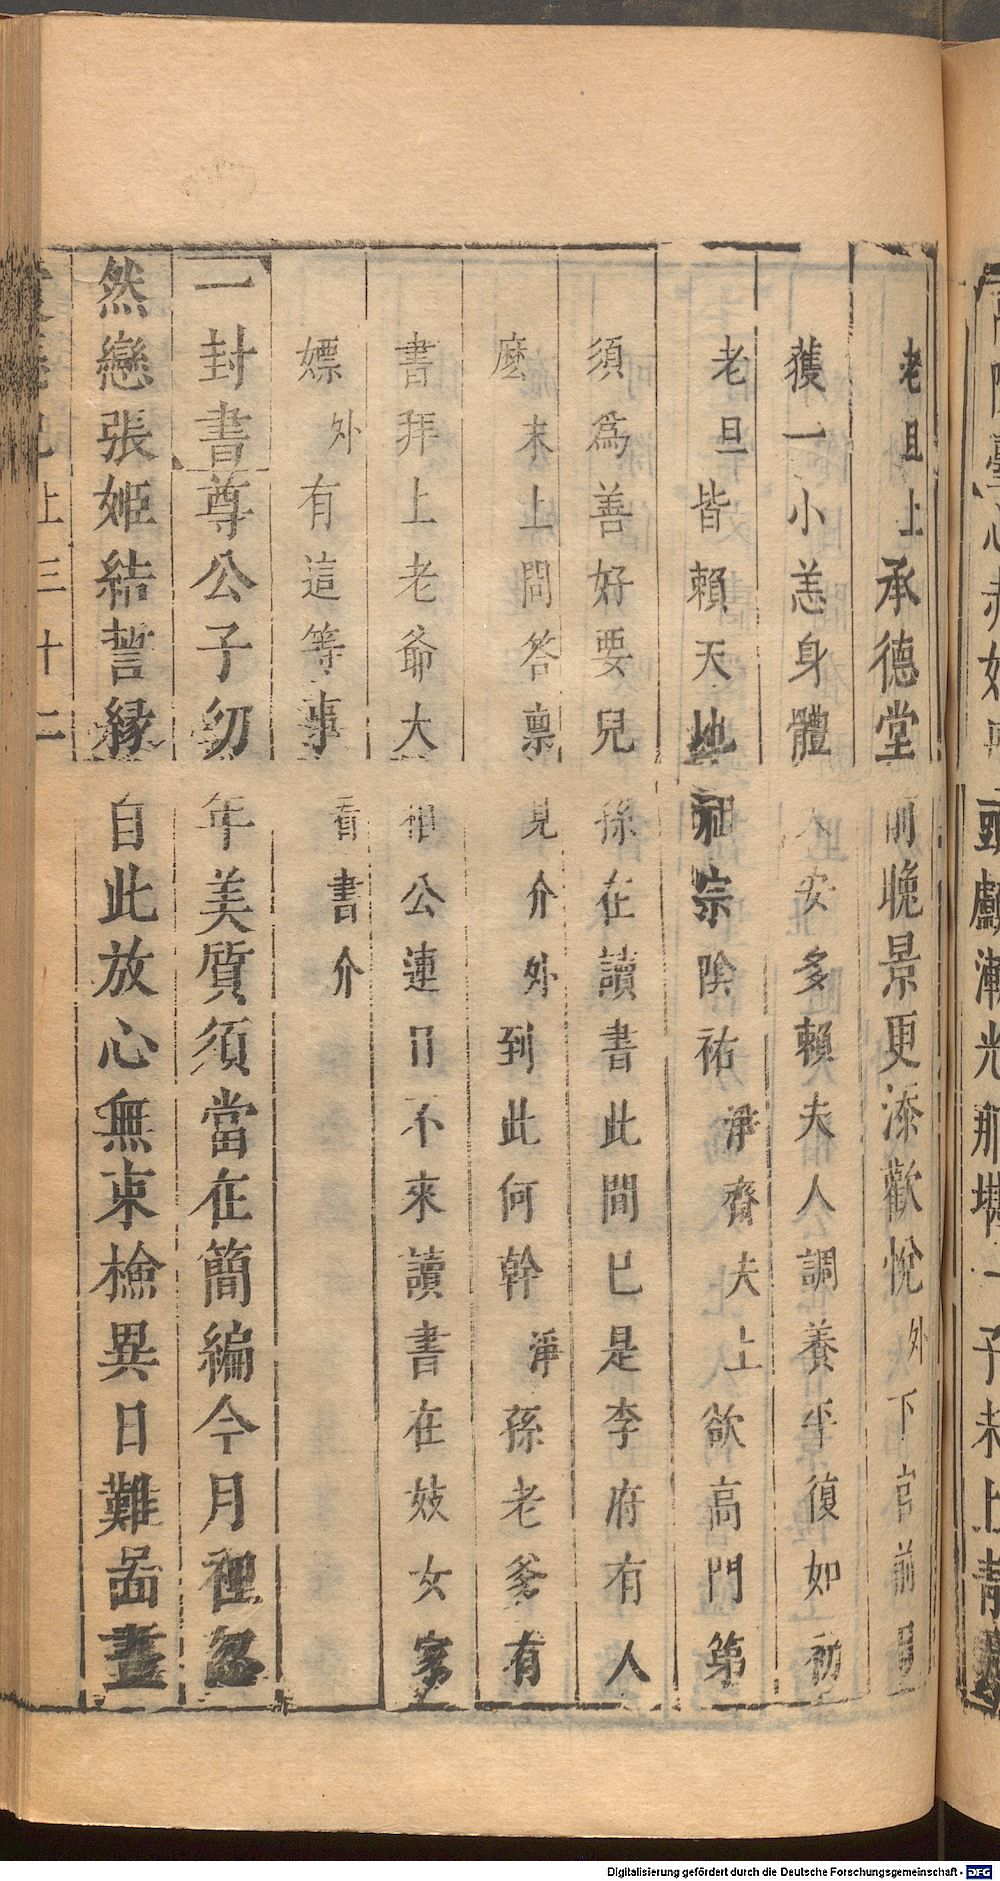 老旦上承德堂前晚景更添歡悅外下官前月
獲一小恙身體安多賴夫人調養平復如初
老旦皆賴天地祖宗陰祐淨齊夫上欲高門第
須爲善好要兒孫在讀書此間已是李府有人
麽末上問答禀見介外到此何幹淨孫老爹有
書拜上老爺大相公連日不來讀書在妓女家
嫖外有這等事看書介
一封書尊公子幼年美質須當在簡編今月裡忽
然戀張姬結誓緣自此放心無束檢異日難啚晝
上三十二
Digitalisierung gefördert durch die Deutsche Forschungsgemeinschaft - DFG